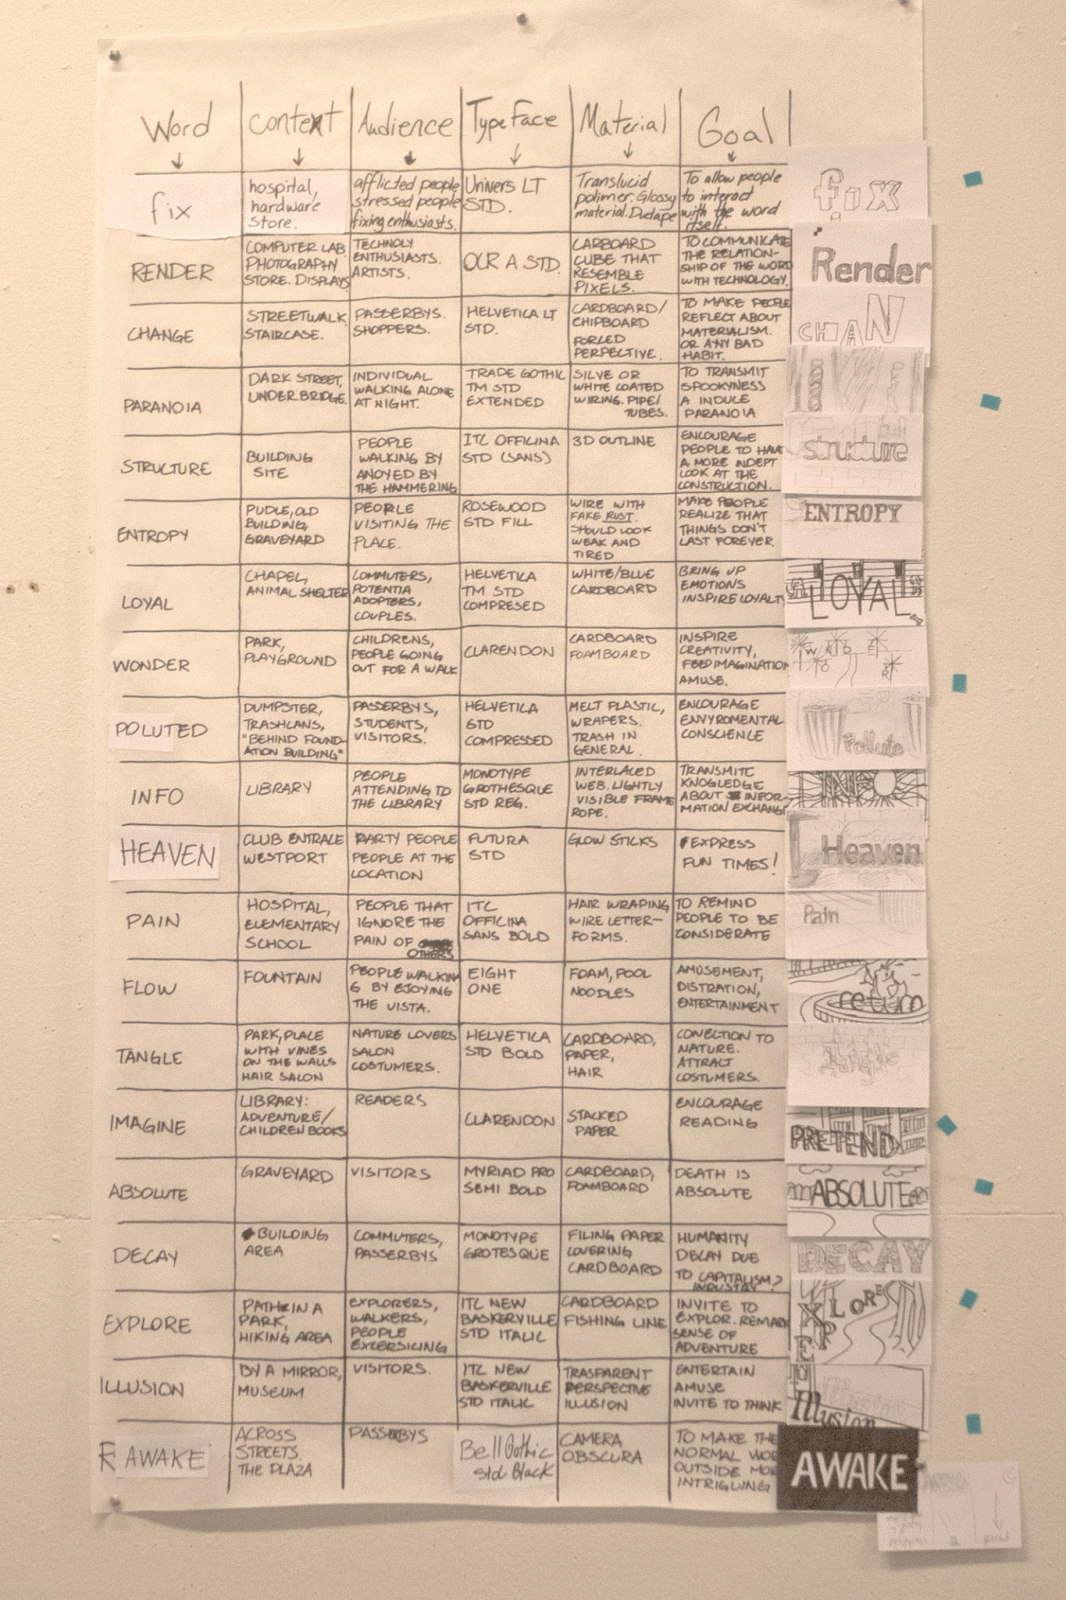 Word
Context
Audience
Type Face
Material
Goal
fix
hospital,
hardware
store.
afflicted people
stressed people
fixing enthusiasts.
Univers LT
STD.
Translucid
polimer. Glossy
material. Ductape
To allow people
to interact
with the word
itself.
fix
RENDER
COMPUTER LAB
PHOTOGRAPHY
STORE. DISPLAYS
TECHNOLY
ENTHUSIASTS.
ARTISTS.
OCR A STD.
CARBOARD
CUBE THAT
RESEMBLE
PIXELS.
TO COMMUNICATE
THE RELATION-
SHIP OF THE WORD
WITH TECHNOLOGY.
Render
CHANGE
STREETWALK
STAIRCASE.
PASSERBYS.
SHOPPERS.
HELVETICA LT
STD.
CARDBOARD/
CHIPBOARD
FORCED
PERPECTIVE.
TO MAKE PEOPLE
REFLECT ABOUT
MATERIALISM.
OR ANY BAD
HABIT.
CHAN
PARANOIA
DARK STREET,
UNDER BRIDGE.
INDIVIDUAL
WALKING ALONE
AT NIGHT.
TRADE GOTHIC
TM STD
EXTENDED
SILVE OR
WHITE COATED
WIRING. PIPE/
TUBES.
TO TRANSMIT
SPOOKYNESS
A INDUCE
PARANOIA
STRUCTURE
BUILDING
SITE
PEOPLE
WALKING BY
ANOYED BY
THE HAMMERING
ITC OFFICINA
STD (SANS)
3D OUTLINE
ENCOURAGE
PEOPLE TO HAVE
A MORE INDEPT
LOOK AT THE
CONSTRUCTION.
structure
ENTROPY
PUDLE, OLD
BUILDING,
GRAVEYARD
PEOPLE
VISITING THE
PLACE.
ROSEWOOD
STD FILL
WIRE WITH
FAKE RUST.
SHOULD LOOK
WEAK AND
TIRED
MAKE PEOPLE
REALIZE THAT
THINGS DON'T
LAST FOREVER.
ENTROPY
LOYAL
CHAPEL,
ANIMAL SHELTER
COMMUTERS,
POTENTIA
ADOPTERS,
COUPLES.
HELVETICA
TM STD
COMPRESED
WHITE/BLUE
CARDBOARD
BRING UP
EMOTIONS
INSPIRE LOYALTY
LOYAL
WONDER
PARK,
PLAYGROUND
CHILDRENS,
PEOPLE GOING
OUT FOR A WALK
CLARENDON
CARDBOARD
FOAMBOARD
INSPIRE
CREATIVITY,
FEED IMAGINATION
AMUSE.
POLUTED
DUMPSTER,
TRASHCANS,
"BEHIND FOUND-
ATION BUILDING"
PASSERBYS,
STUDENTS,
VISITORS.
HELVETICA
STD
COMPRESSED
MELT PLASTIC,
WRAPERS.
TRASH IN
GENERAL.
ENCOURAGE
ENVYROMENTAL
CONSCIENCE
Pollute
INFO
LIBRARY
PEOPLE
ATTENDING TO
THE LIBRARY
MONOTYPE
GROTHESQUE
STD REG.
INTERLACED
WEB. LIGHTLY
VISIBLE FRAME
ROPE.
TRANSMITE
KNOGLEDGE
ABOUT INFOR-
MATION EXCHANGE
INFO
HEAVEN
CLUB ENTRALE
WESTPORT
PARTY PEOPLE
PEOPLE AT THE
LOCATION
FUTURA
STD
GLOW STICKS
EXPRESS
FUN TIMES!
Heaven
PAIN
HOSPITAL,
ELEMENTARY
SCHOOL
PEOPLE THAT
IGNORE THE
PAIN OF
OTHERS
ITC
OFFICINA
SANS BOLD
HAIR WRAPING
WIRE LETTER-
FORMS.
TO REMIND
PEOPLE TO BE
CONSIDERATE
Pain
FLOW
FOUNTAIN
PEOPLE WALKIN
G BY EJOYING
THE VISTA.
EIGHT
ONE
FOAM, POOL
NOODLES
AMUSEMENT,
DISTRATION,
ENTERTAINMENT
return
TANGLE
PARK, PLACE
WITH VINES
ON THE WALLS
HAIR SALON
NATURE LOVERS
SALON
COSTUMERS.
HELVETICA
STD BOLD
CARDBOARD,
PAPER,
HAIR
CONECTION TO
NATURE.
ATTRACT
COSTUMERS.
IMAGINE
LIBRARY:
ADVENTURE/
CHILDREN BOOKS
READERS
CLARENDON
STACKED
PAPER
ENCOURAGE
READING
PRETEND
ABSOLUTE
GRAVEYARD
VISITORS
MYRIAD PRO
SEMI BOLD
CARDBOARD,
FOAMBOARD
DEATH IS
ABSOLUTE
ABSOLUTE
DECAY
BUILDING
AREA
COMMUTERS,
PASSERBYS
MONOTYPE
GROTESQUE
FILING PAPER
COVERING
CARDBOARD
HUMANITY
DECAY DUE
TO CAPITALISM?
INDUSTRY
DECAY
EXPLORE
PATH IN A
PARK,
HIKING AREA
EXPLORERS,
WALKERS,
PEOPLE
EXCERSICING
ITC NEW
BASKERVILLE
STD ITALIC
CARDBOARD
FISHING LINE
INVITE TO
EXPLOR. REMARK
SENSE OF
ADVENTURE
EXPLORE
ILLUSION
BY A MIRROR,
MUSEUM
VISITORS.
ITC NEW
BASKERVILLE
STD ITALIC
TRASPARENT
PERSPECTIVE
ILLUSION
ENTERTAIN
AMUSE
INVITE TO THINK
Illusion
AWAKE
ACROSS
STREETS.
THE PLAZA
PASSERBYS
Bell Gothic
std Black
CAMERA
OBSCURA
TO MAKE THE
NORMAL WOR
OUTSIDE MOR
INTRIGUING
AWAKE